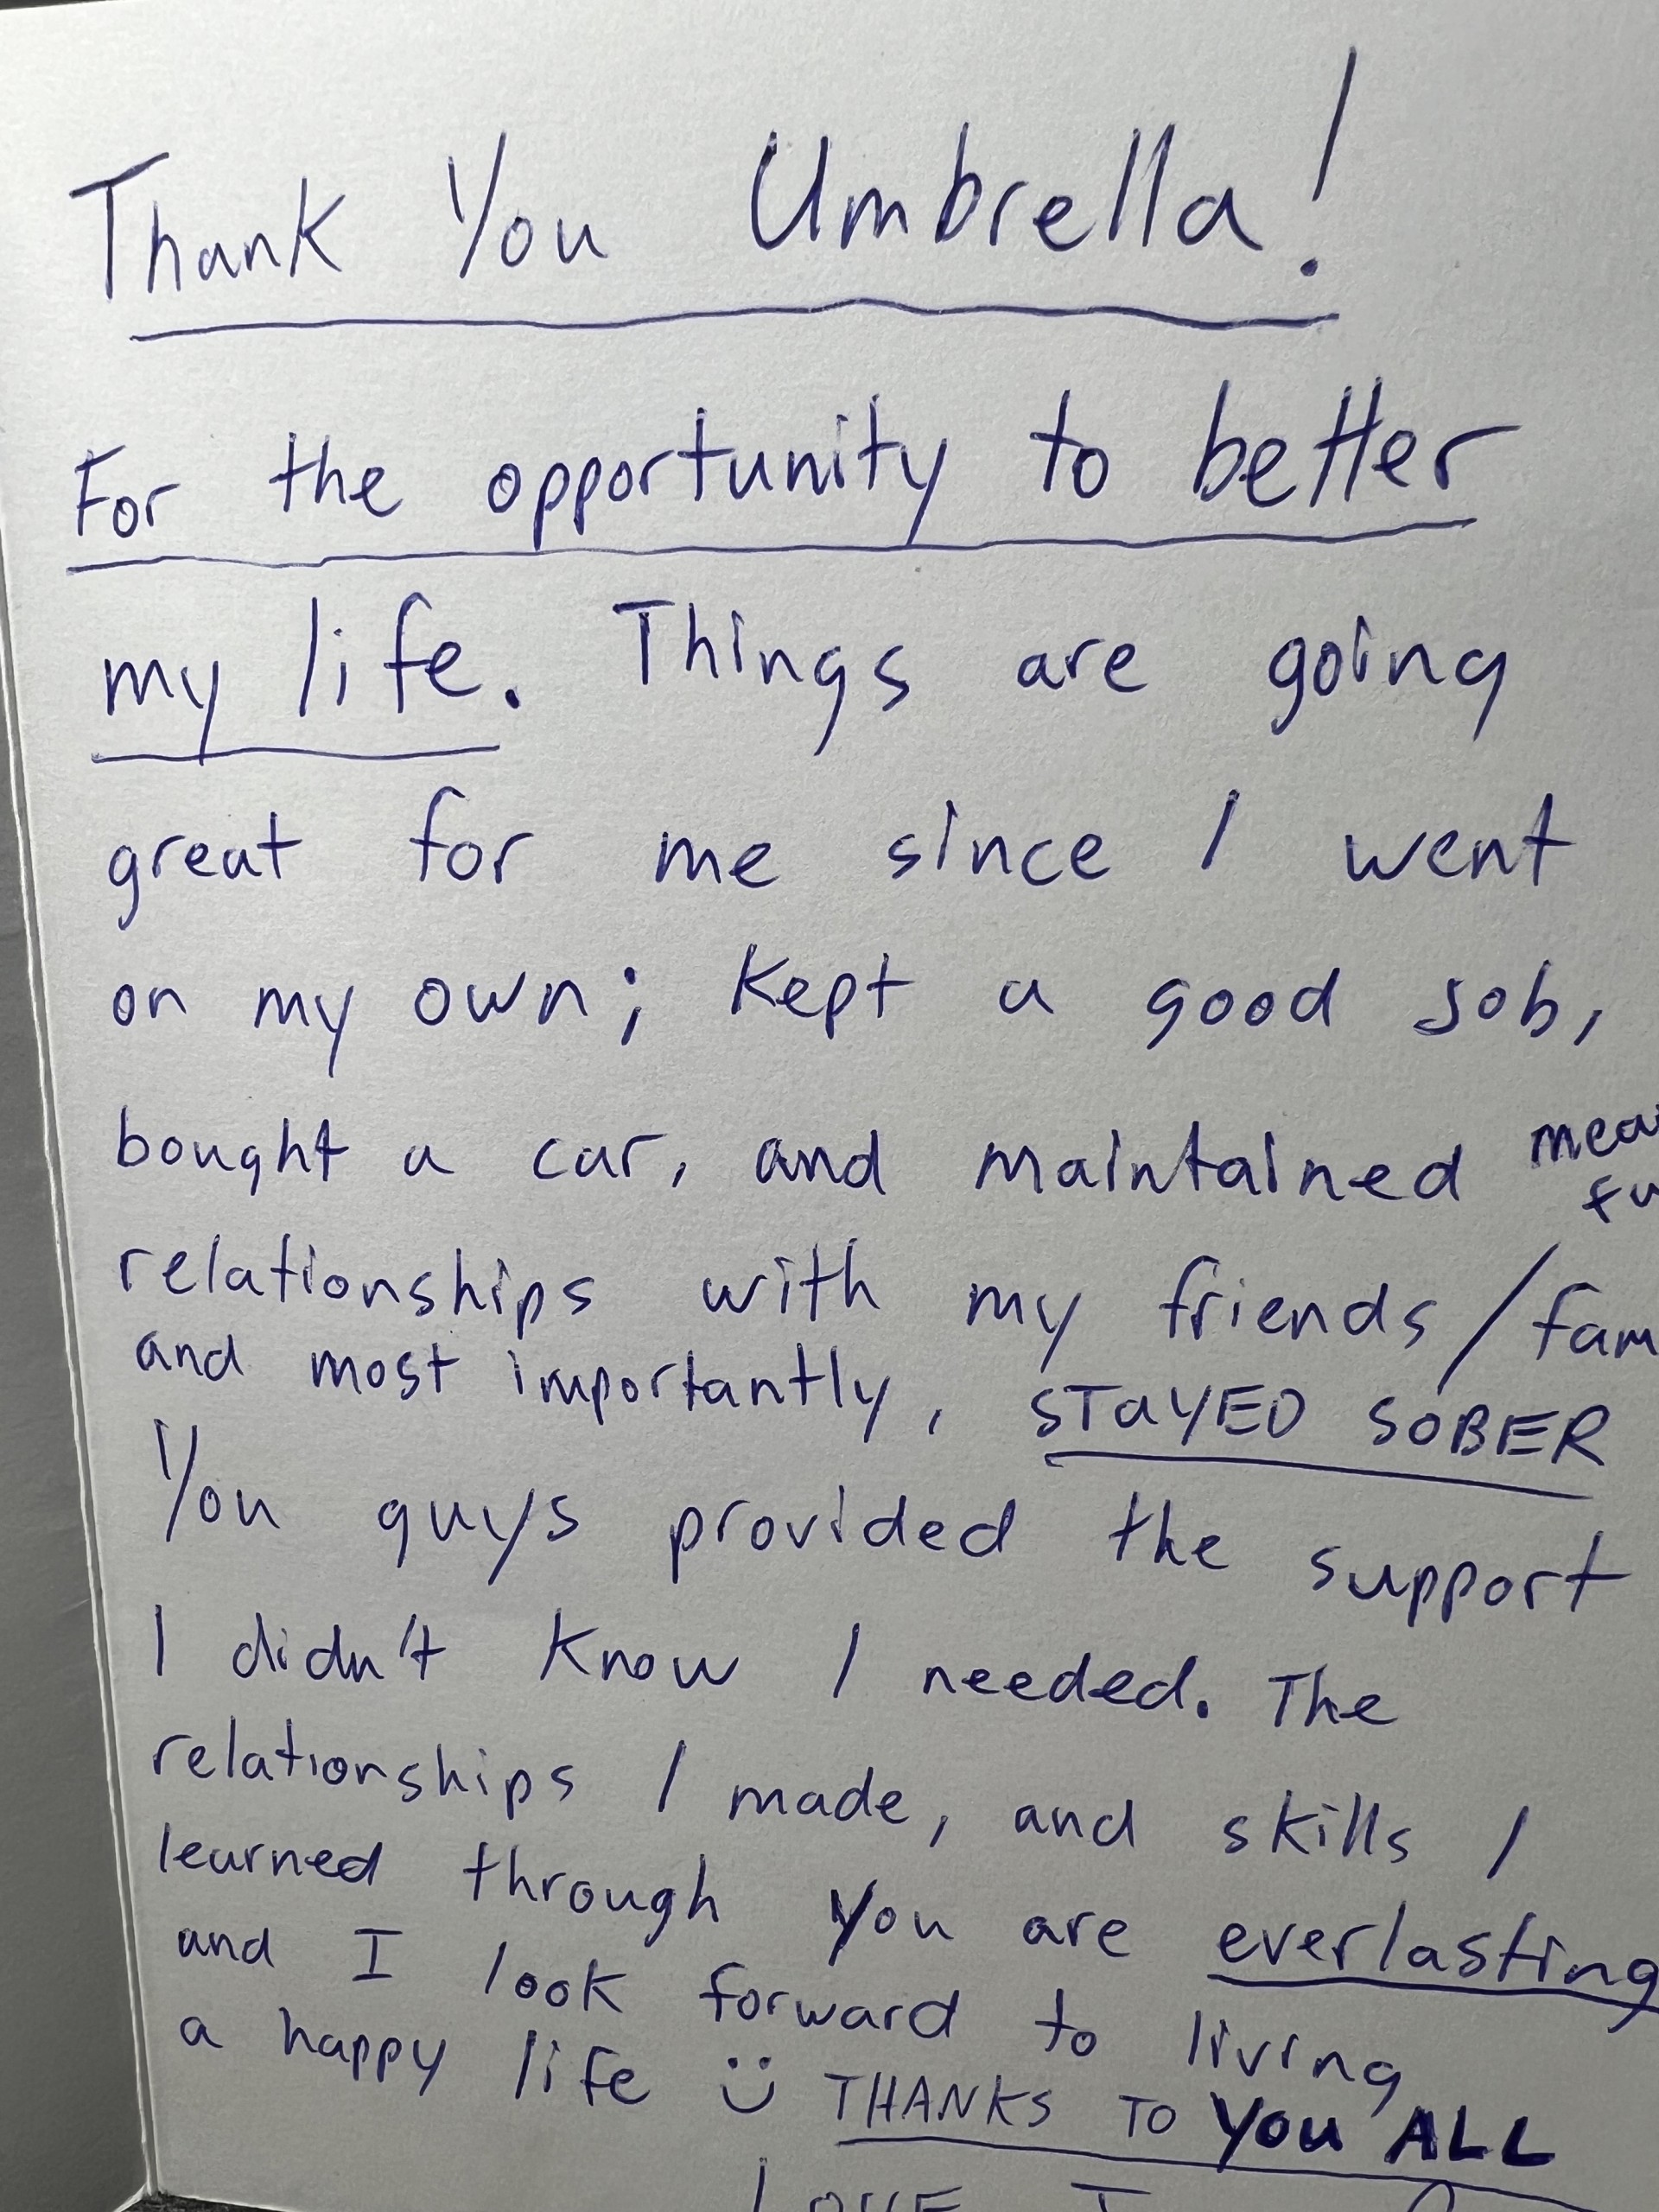 Thank You Umbrella!
For the opportunity to better
my life. Things are going
great for me since I went
on my own; kept a good job,
bought a car, and maintained
relationships with my friends/fam
and most importantly, STAYED SOBER
You guys provided the support
I didn't know I needed. The
relationships I made, and skills I
learned through you are everlasting
and I look forward to living
a happy life THANKS TO YOU ALL
LOVE